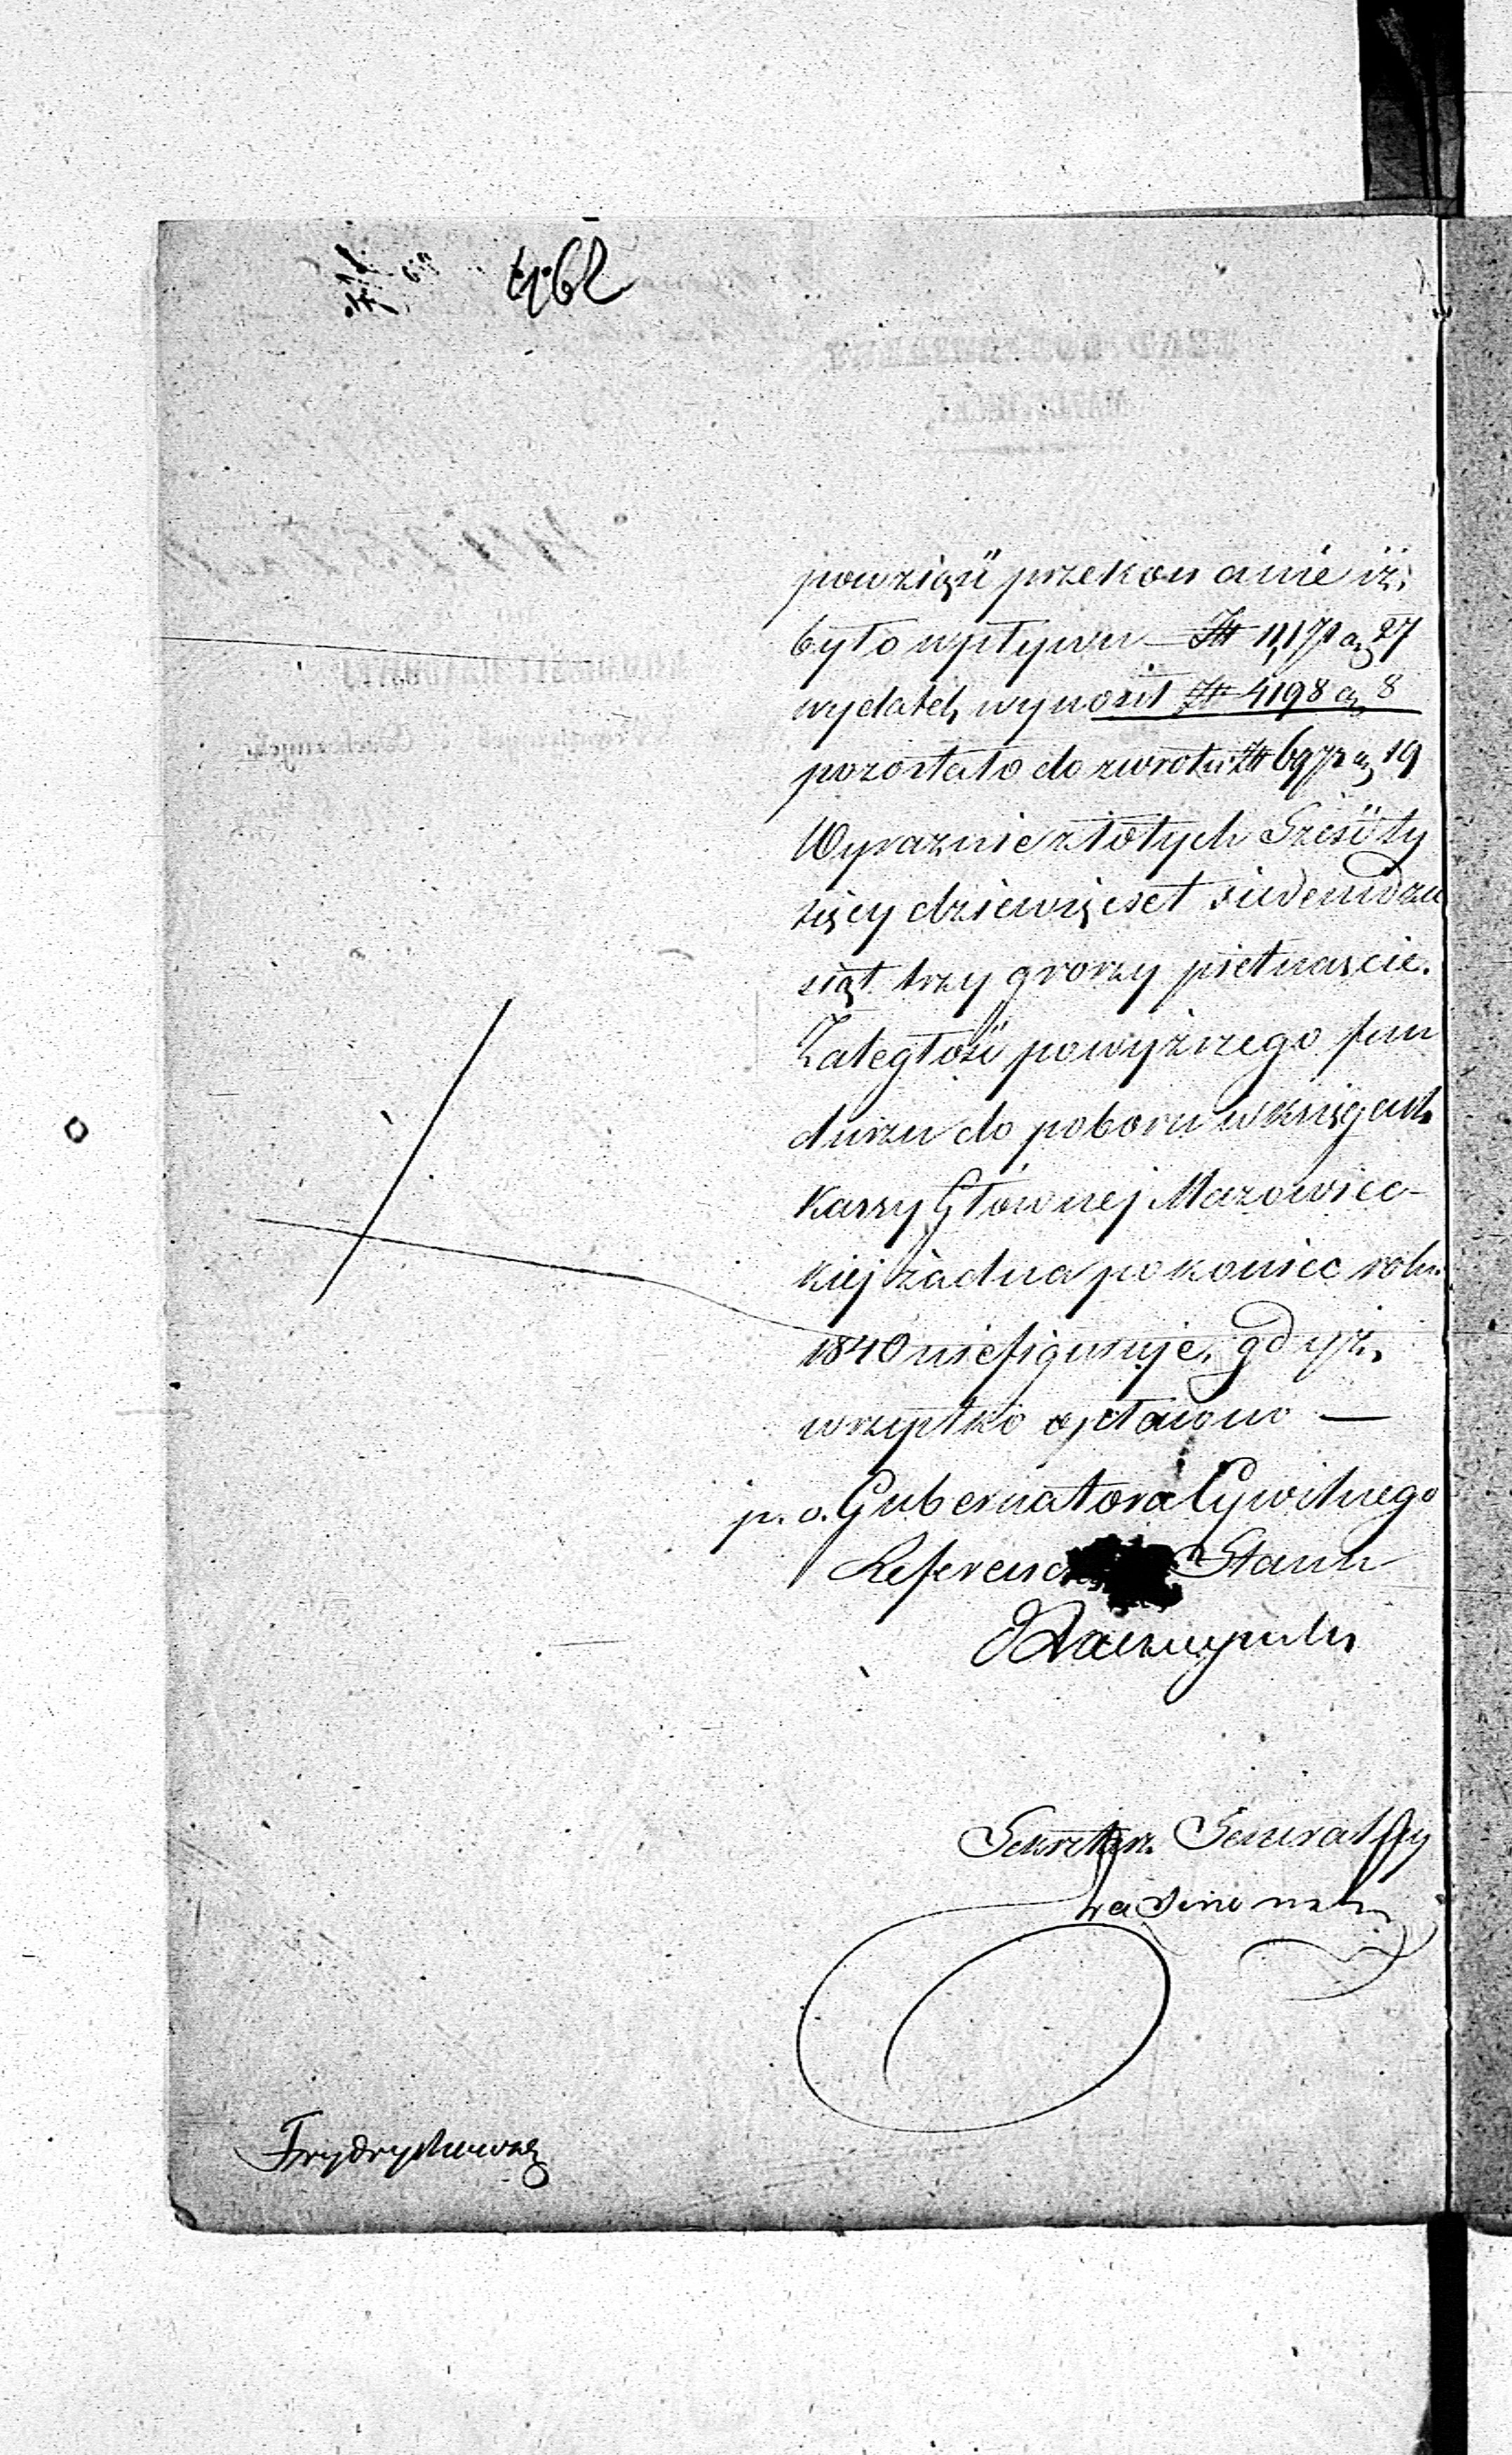 powziąść przekonanie iż,
było wpływu — Złt 11,171 gr 27
wydatek wynosił Złt 4198 gr 8
pozostało do zwrotu Złt 6973 gr 19
Wyraźnie złotych Sześć ty
sięcy dziewięcset siedemdzie
siąt trzy groszy pietnaście.
Zaległość powyższego fun
duszu do poboru w księgach
Kassy Głównej Mazowiec-
kiej żadna po koniec roku
1840 niefiguruje, gdyż,
wszystko opłacono —
p. o. Gubernatora Cywilnego
Stanu
Sekretarz Generalny
Frydrychowicz